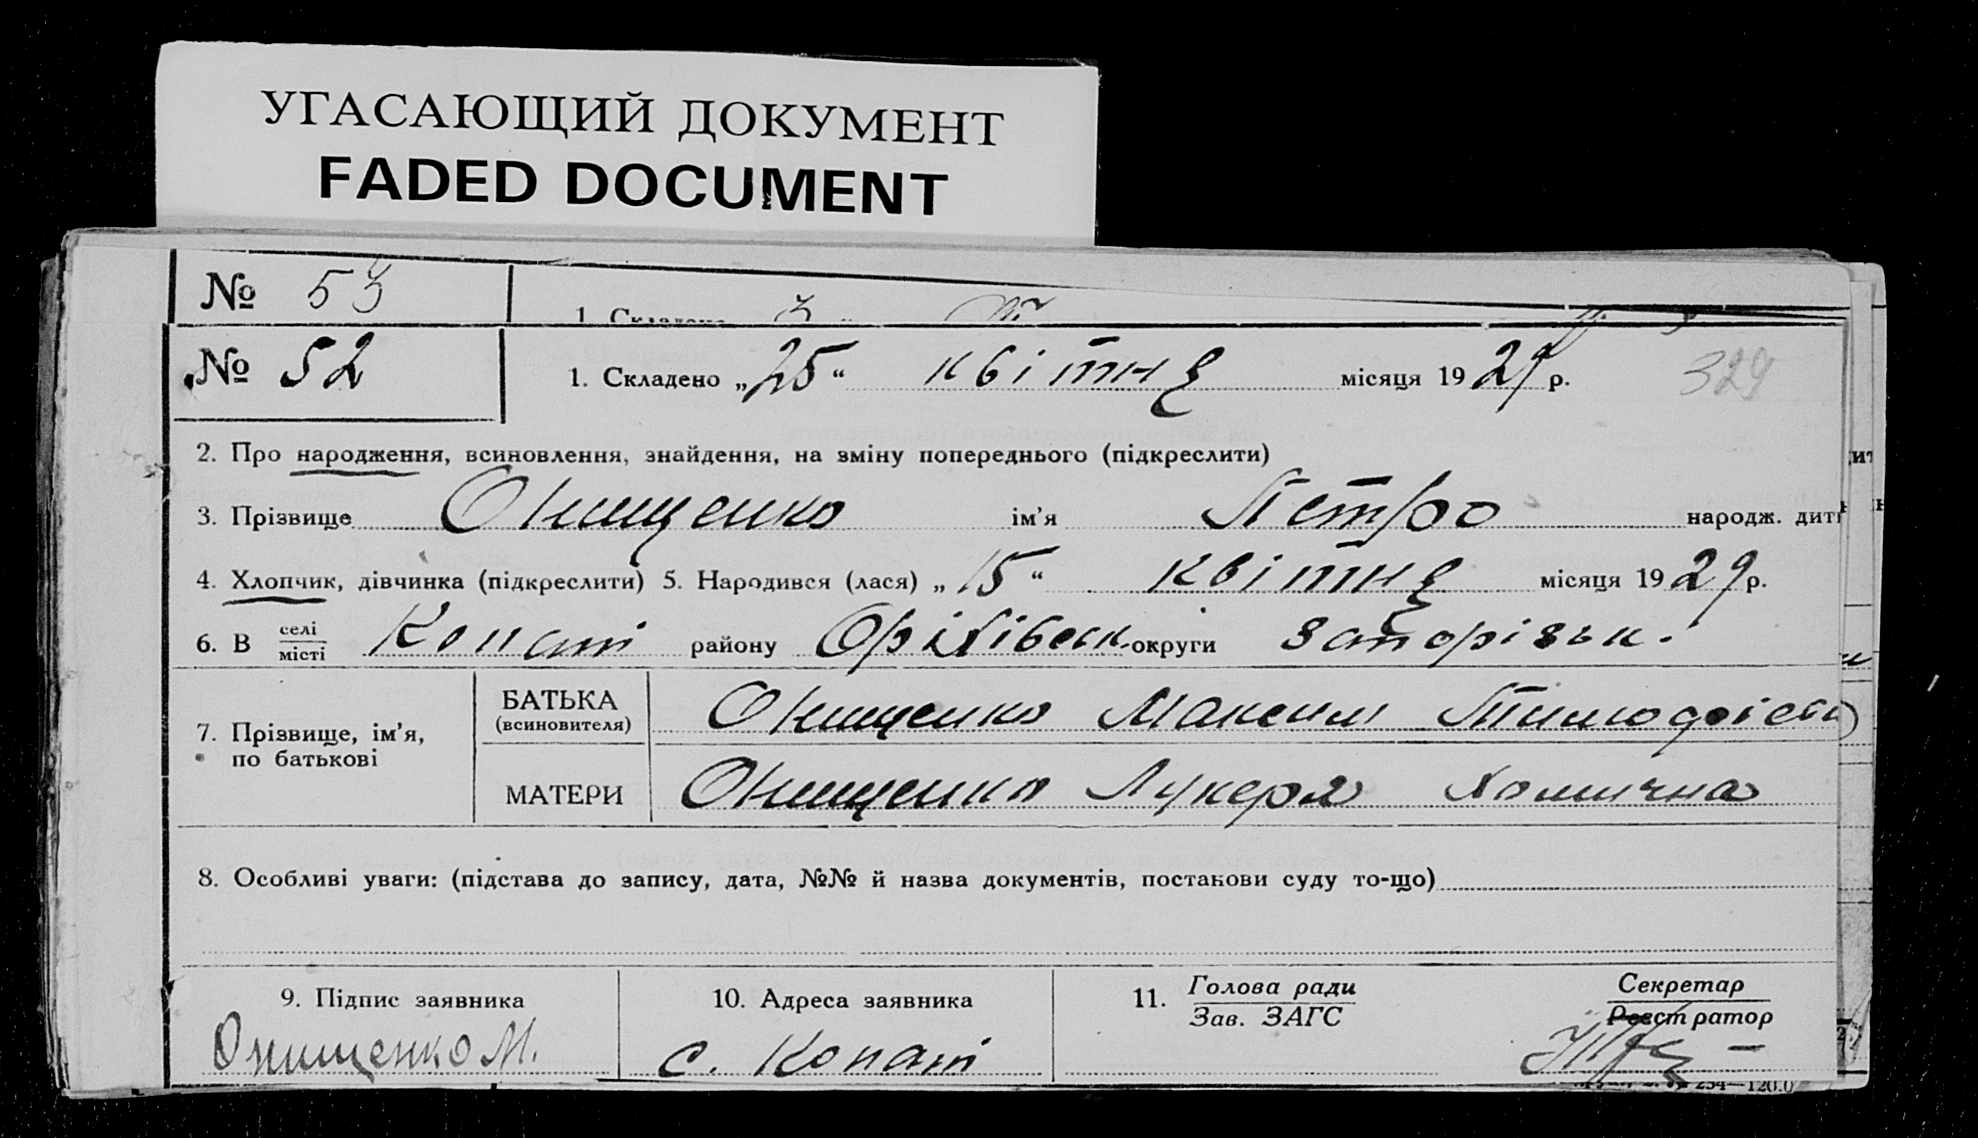 УГАСАЮЩИЙ ДОКУМЕНТ
FADED DOCUMENT
№ 53
1. Складено 3
№ 52 1. Складено „25“ квітня місяця 1929 р. 329
2. Про народження, всиновлення, знайдення, на зміну попереднього (підкреслити)
3. Прізвище Онищенко ім’я Петро народж. дит
4. Хлопчик, дівчинка (підкреслити) 5. Народився (лася) „15“ квітня місяця 1929 р.
6. В селі/місті Копані району Оріхівськ. округи Запорізьк.
7. Прізвище, ім’я, по батькові
БАТЬКА (всиновителя) Онищенко Максим Тимофієв
МАТЕРИ Онищенко Лукеря Хомична
8. Особливі уваги: (підстава до запису, дата, №№ й назва документів, постанови суду то-що)
9. Підпис заявника 10. Адреса заявника 11. Голова ради / Зав. ЗАГС Секретар / Реєстратор
Онищенко М. с. Копані
254—120.0